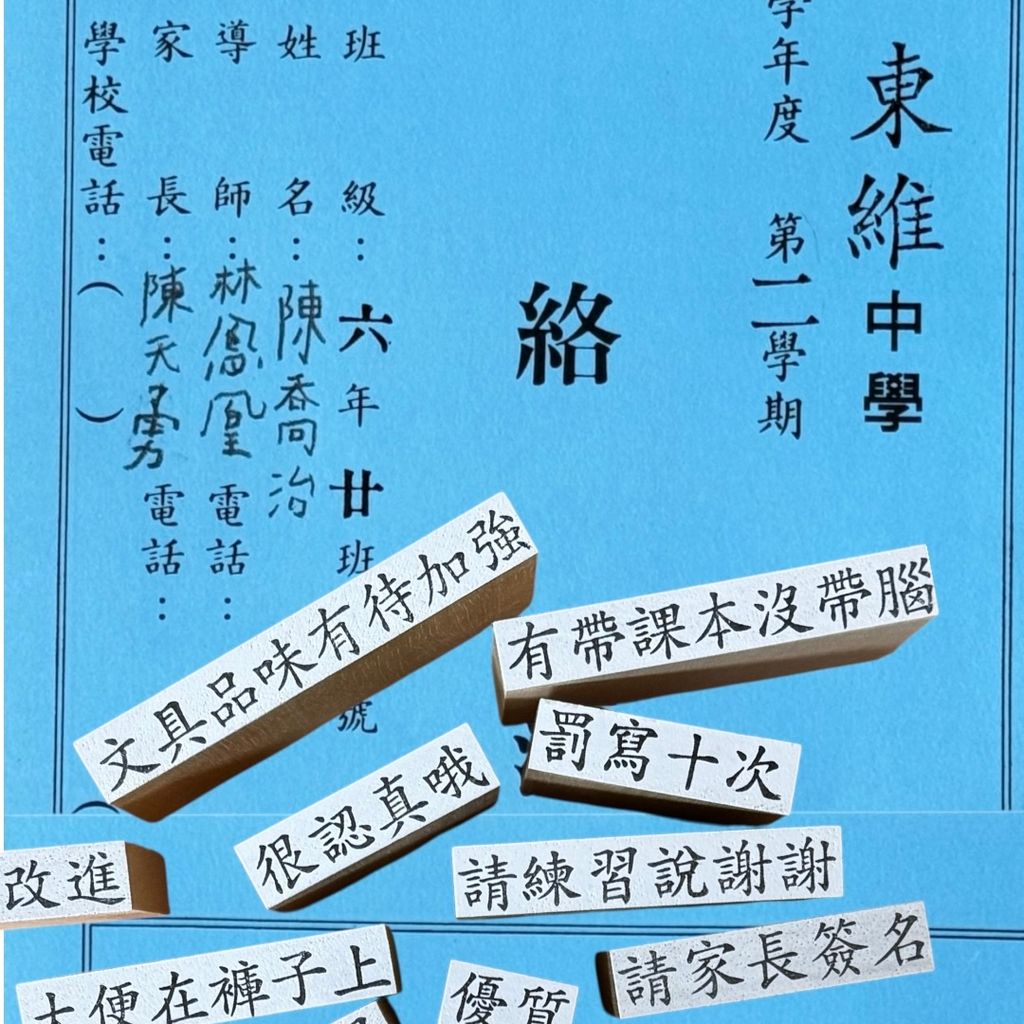 東維中學
學年度 第二學期
絡
班級：六年廿班
號
姓名：陳喬治
導師：林鳳凰 電話：
家長：陳天勇 電話：
學校電話：（ ）
文具品味有待加強
有帶課本沒帶腦
罰寫十次
很認真哦
改進
請練習說謝謝
請家長簽名
大便在褲子上
優質